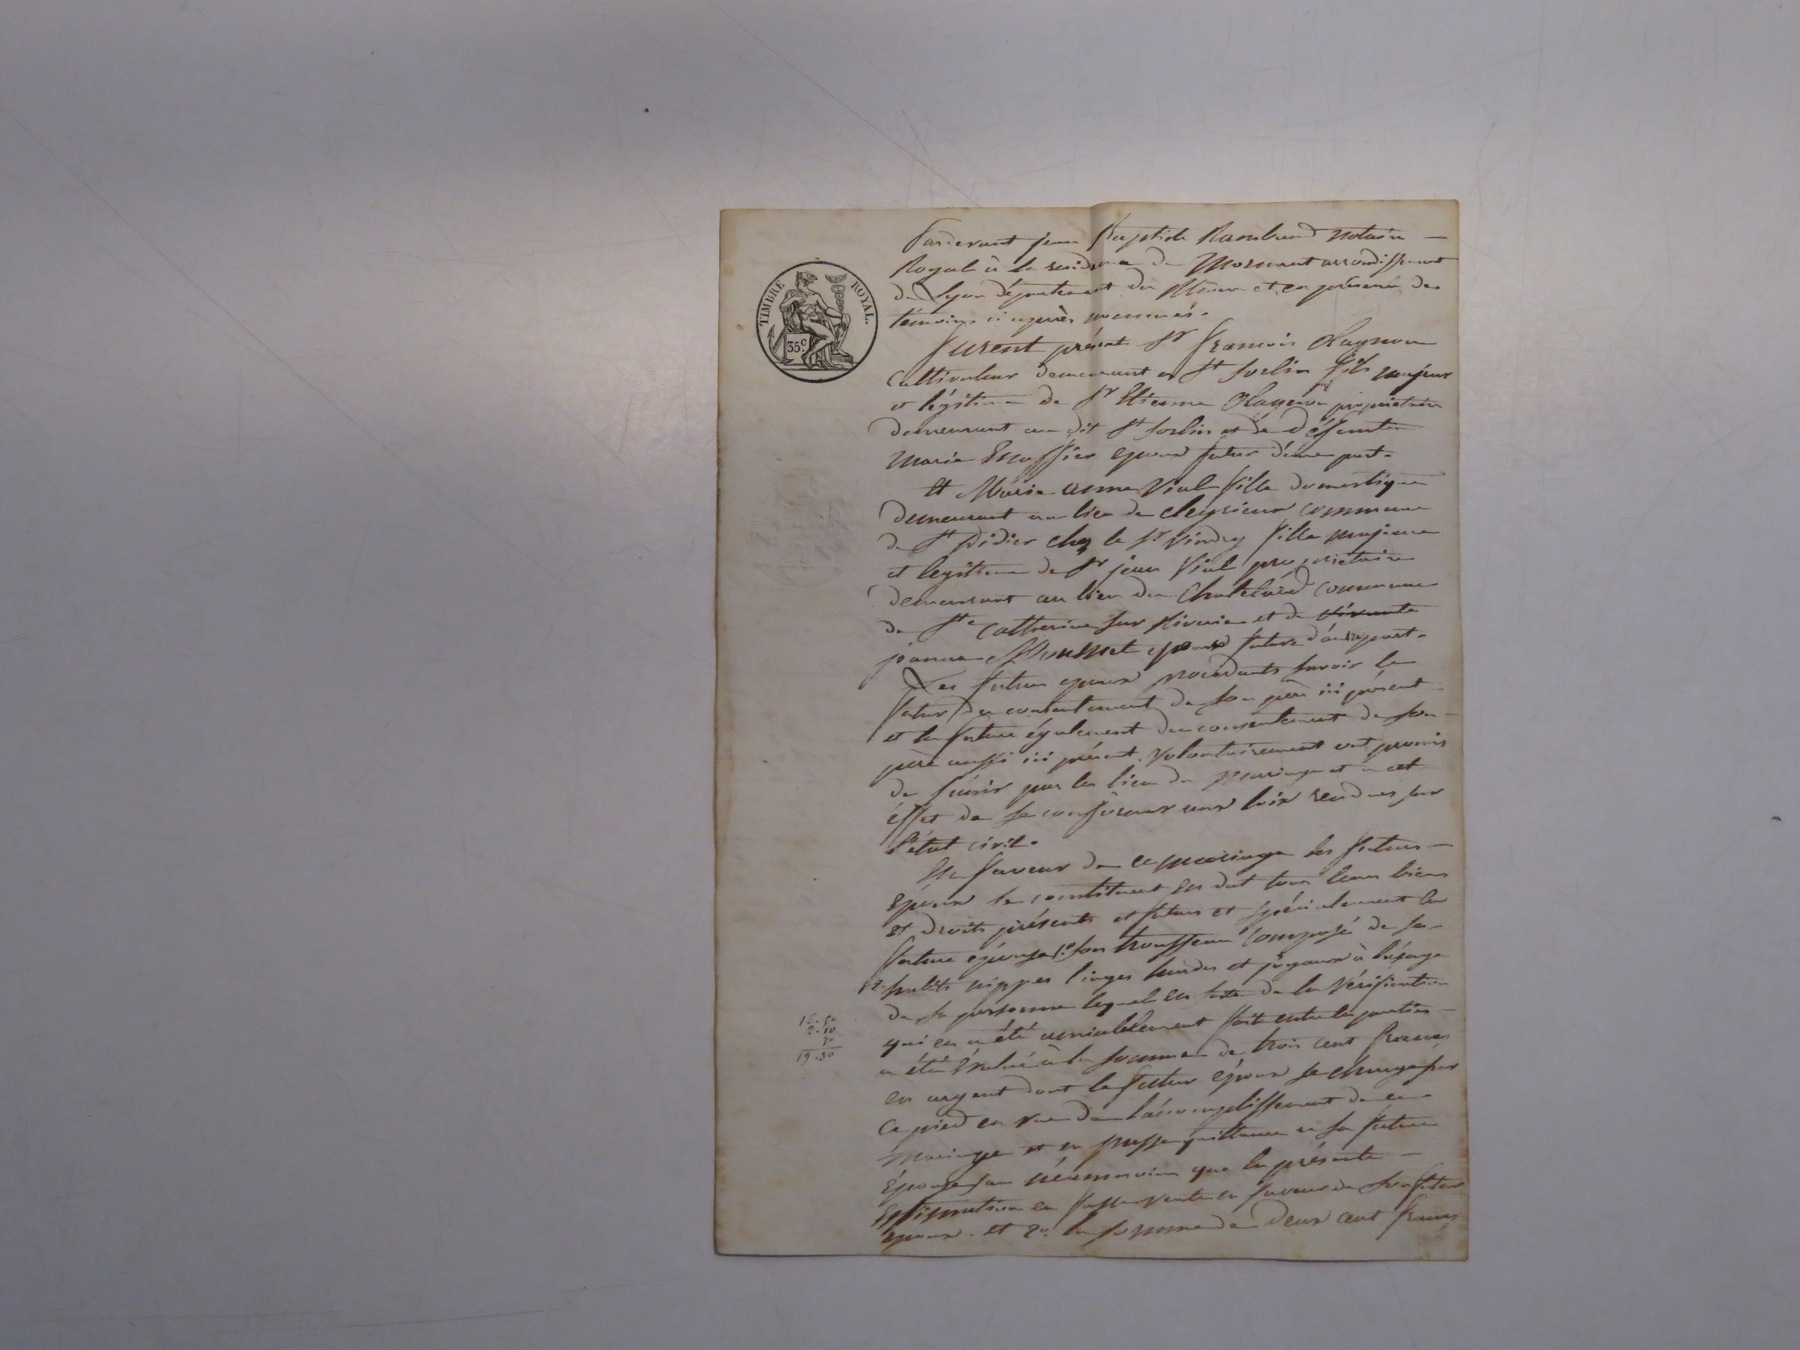 TIMBRE ROYAL.
35c.
Pardevant jean Baptiste Rambaud notaire
Royal à la residence de Mornant arrondissement
de Lyon département du Rhône et en présence des
témoins ci après nommés.
furent présent Sr françois
Cultivateur demeurant a St Sorlin fils majeur
et légitime de Sr Etienne propriétaire
demeurant au dit St Sorlin et de défunte
Marie Escoffier epoux futur d'une part.
Et Marie anne Vial fille domestique
demeurant au lieu de commune
de St Didier chez le Sr fille majeure
et legitime de Sr jean Vial propriétaire
demeurant au lieu du Chatelard commune
de Ste Catherine sur Riverie et de vivante
jeanne epouse future d'autre part.
Les futurs epoux procédants savoir le
futur du consentement de son père ici présent
et la future également du consentement de son
père aussi ici présent. volontairement ont promis
de s'unir par les lien du mariage et a cet
éffet de se conformer aux loix rendues sur
l'état civil.
En faveur de ce mariage les futurs
époux se constituent en dot tous leurs biens
et droits présents et futurs et spécialement la
future épouse 1o. son trousseau composé de ses
habits nippes linges hardes et joyaux à l'usage
de sa personne lequel en suite de la vérification
qui en a été amiablement faite entre les parties
a été évalué à la somme de trois cent francs
en argent dont le futur époux se charge sur
ce pied en vue de l'accomplissement de ce
mariage et en passe quittance a sa future
épouse sans néanmoins que la présente
Estimation en fasse vente en faveur du futur
epoux. et 2o. la somme de deux cent francs
16.50
2.10
70
19.30